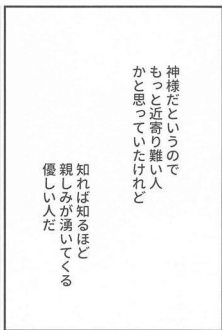 神様だというので
もっと近寄り難い人
かと思っていたけれど
知れば知るほど
親しみが湧いてくる
優しい人だ